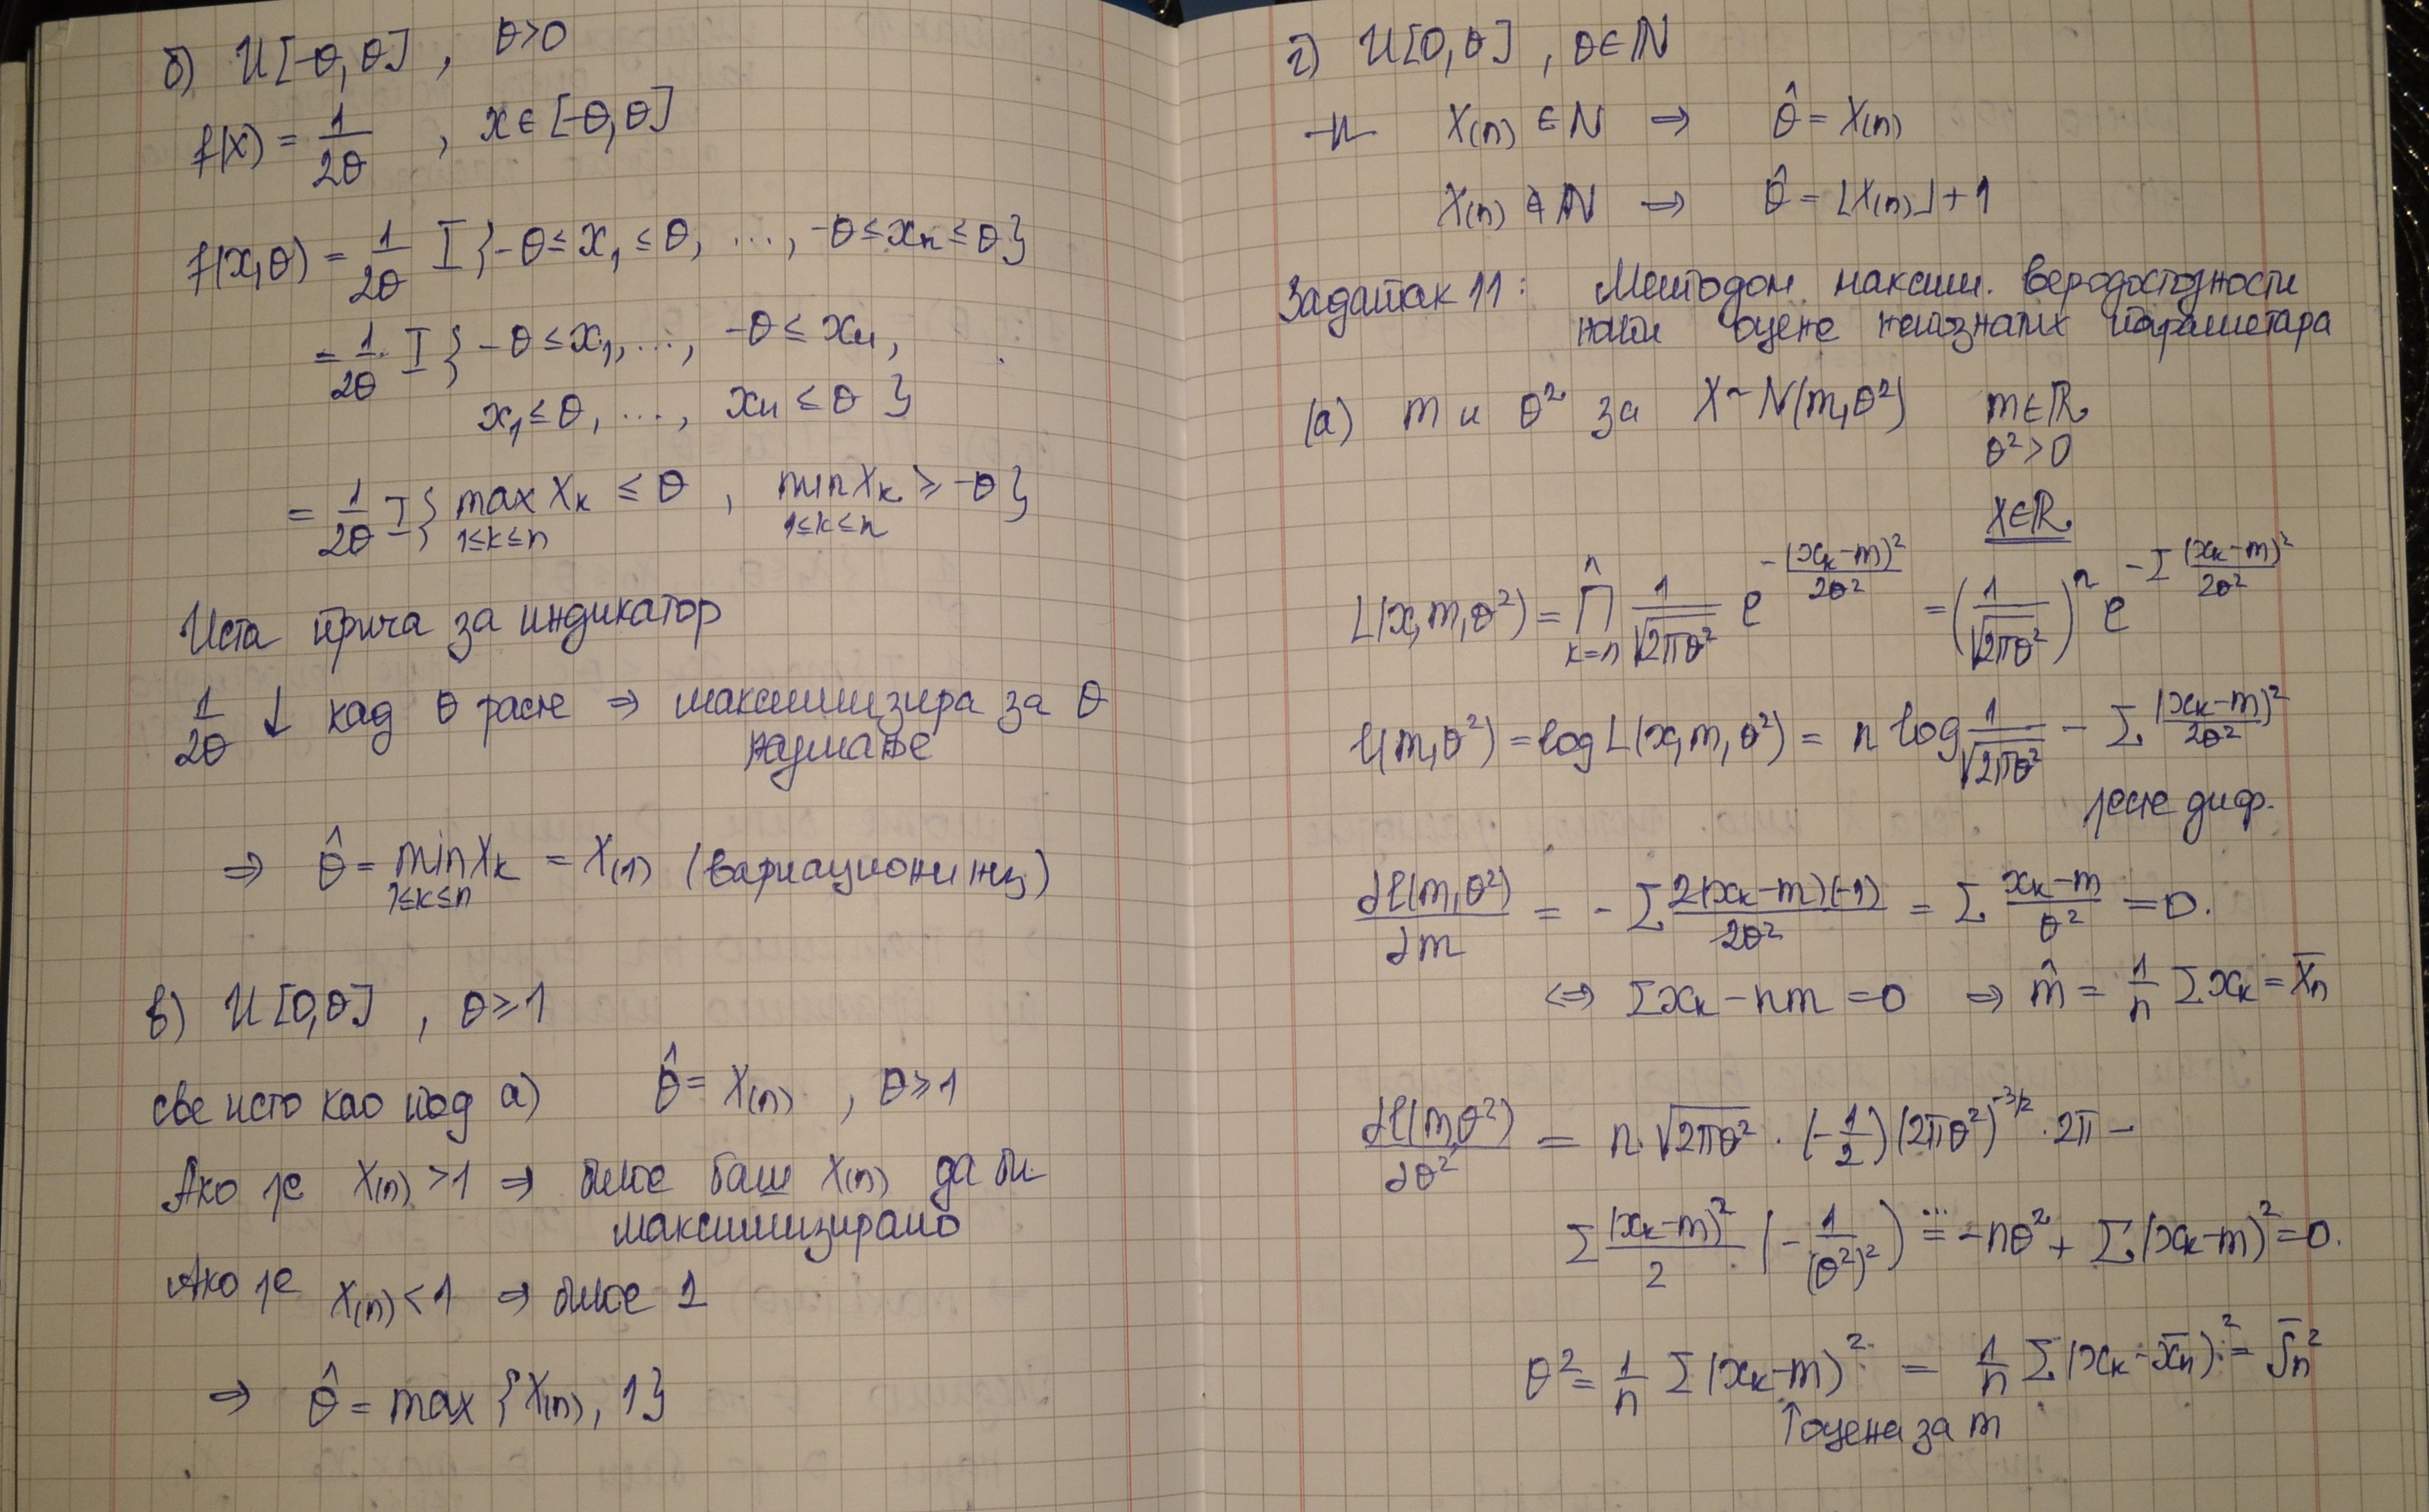 б) U[-θ, θ] , θ>0
f(x) = 1/2θ , x∈[-θ,θ]
f(x,θ) = 1/2θ I{-θ≤x₁≤θ, ..., -θ≤xn≤θ}
= 1/2θ I{-θ≤x₁,..., -θ≤xn,
x₁≤θ, ..., xn≤θ}
= 1/2θ I{max Xk ≤ θ , min Xk ≥ -θ}
1≤k≤n 1≤k≤n
Иста прича за индикатор
1/2θ ↓ кад θ расте ⇒ максимизира за θ
најмање
⇒ θ̂ = min Xk = X(1) (варијациони низ)
1≤k≤n
в) U[0,θ] , θ≥1
све исто као под а) θ̂ = X(n) , θ≥1
Ако је X(n) >1 ⇒ биће баш X(n) да би
максимизирало
Ако је X(n) <1 ⇒ биће 1
⇒ θ̂ = max {X(n), 1}
г) U[0,θ] , θ∈ℕ
-||- X(n) ∈ ℕ ⇒ θ̂ = X(n)
X(n) ∉ ℕ ⇒ θ̂ = ⌊X(n)⌋+1
Задатак 11: Методом максим. веродостојности
наћи оцене непознатих параметара
(а) m и θ² за X~N(m,θ²) m∈ℝ
θ²>0
X∈ℝ
L(x,m,θ²) = ∏ₖ₌ₙⁿ 1/√(2πθ²) e^(-(xk-m)²/2θ²) = (1/√(2πθ²))ⁿ e^(-Σ(xk-m)²/2θ²)
l(m,θ²) = log L(x,m,θ²) = n log 1/√(2πθ²) - Σ (xk-m)²/2θ²
јесте диф.
∂l(m,θ²)/∂m = - Σ 2(xk-m)(-1)/2θ² = Σ (xk-m)/θ² = 0.
⇔ Σxk - nm = 0 ⇒ m̂ = 1/n Σxk = X̄n
∂l(m,θ²)/∂θ² = n·√(2πθ²) · (-1/2)(2πθ²)^(-3/2) · 2π -
Σ (xk-m)²/2 (-1/(θ²)²) =...= -nθ² + Σ(xk-m)² = 0.
θ² = 1/n Σ(xk-m)² = 1/n Σ(xk-x̄n)² = S̄n²
↑оцена за m